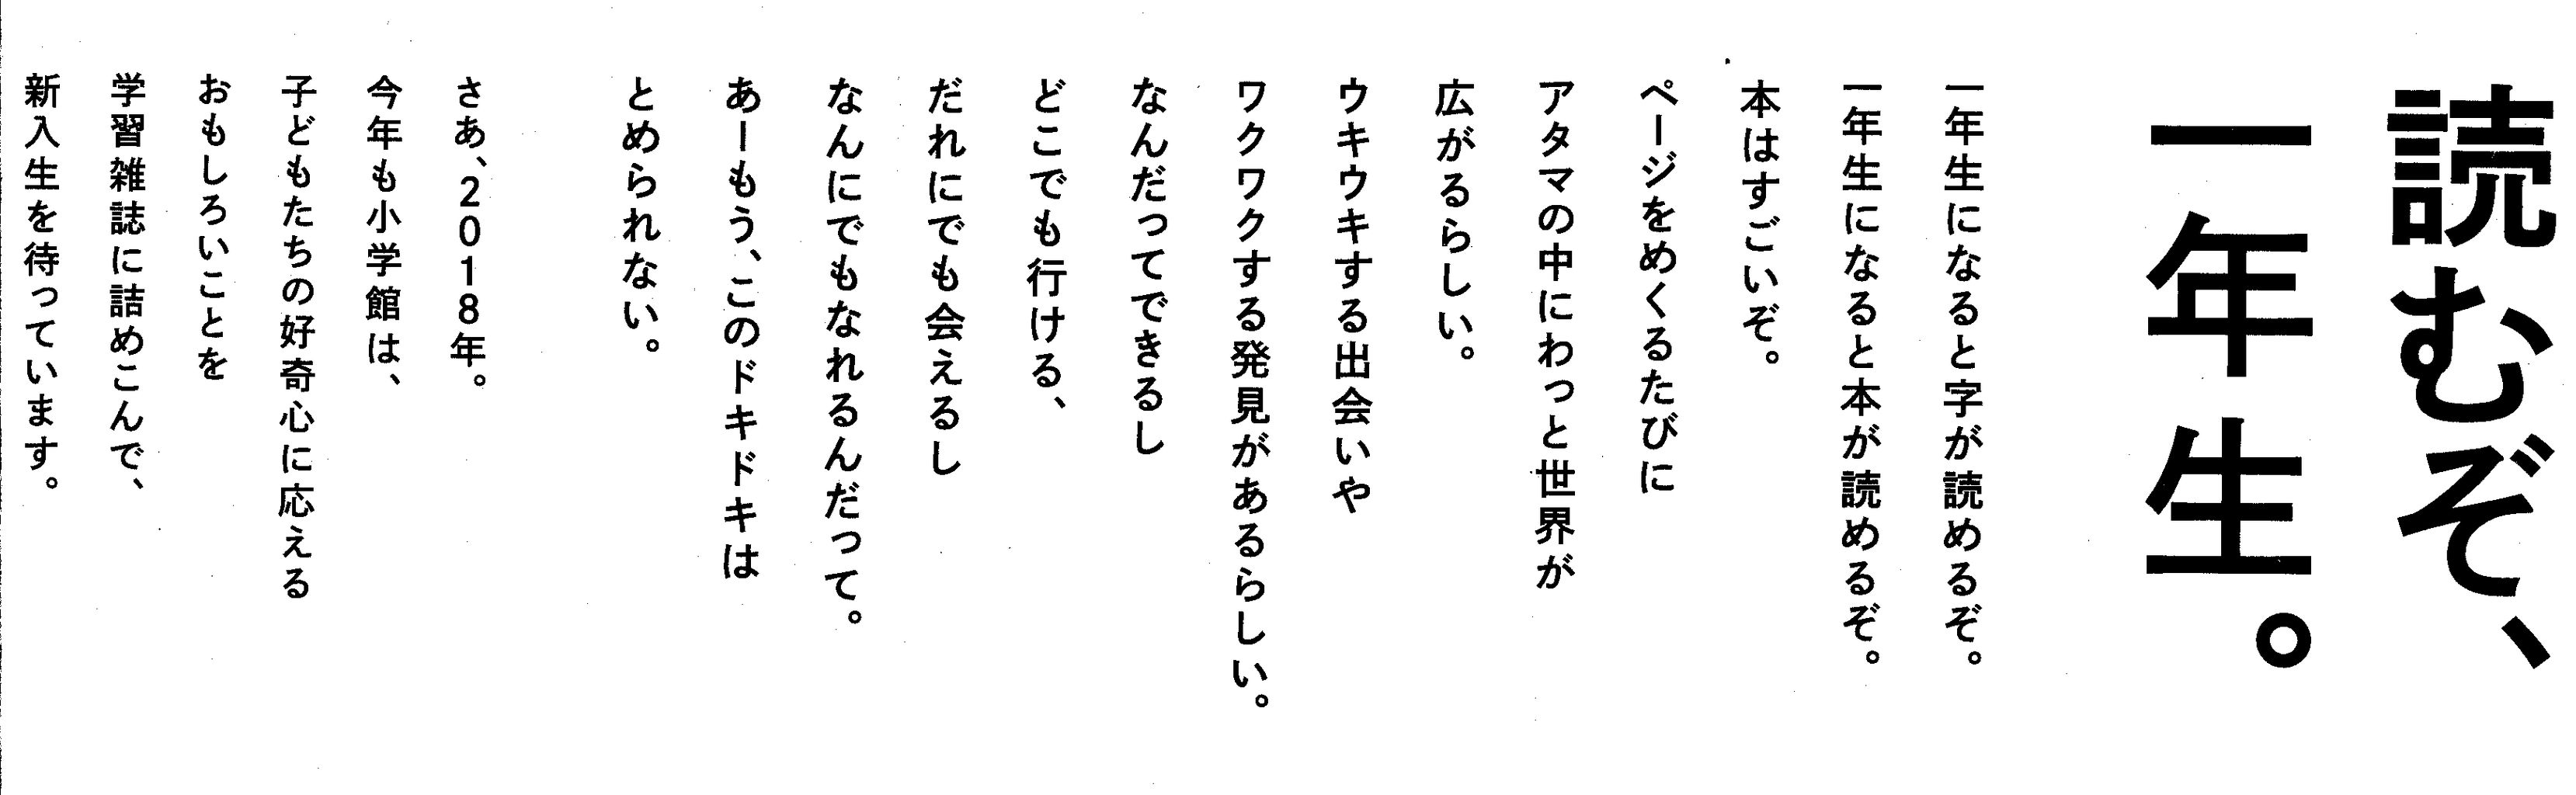 読むぞ、
一年生。
一年生になると字が読めるぞ。
一年生になると本が読めるぞ。
本はすごいぞ。
ページをめくるたびに
アタマの中にわっと世界が
広がるらしい。
ウキウキする出会いや
ワクワクする発見があるらしい。
なんだってできるし
どこでも行ける、
だれにでも会えるし
なんにでもなれるんだって。
あーもう、このドキドキは
とめられない。
さあ、2018年。
今年も小学館は、
子どもたちの好奇心に応える
おもしろいことを
学習雑誌に詰めこんで、
新入生を待っています。